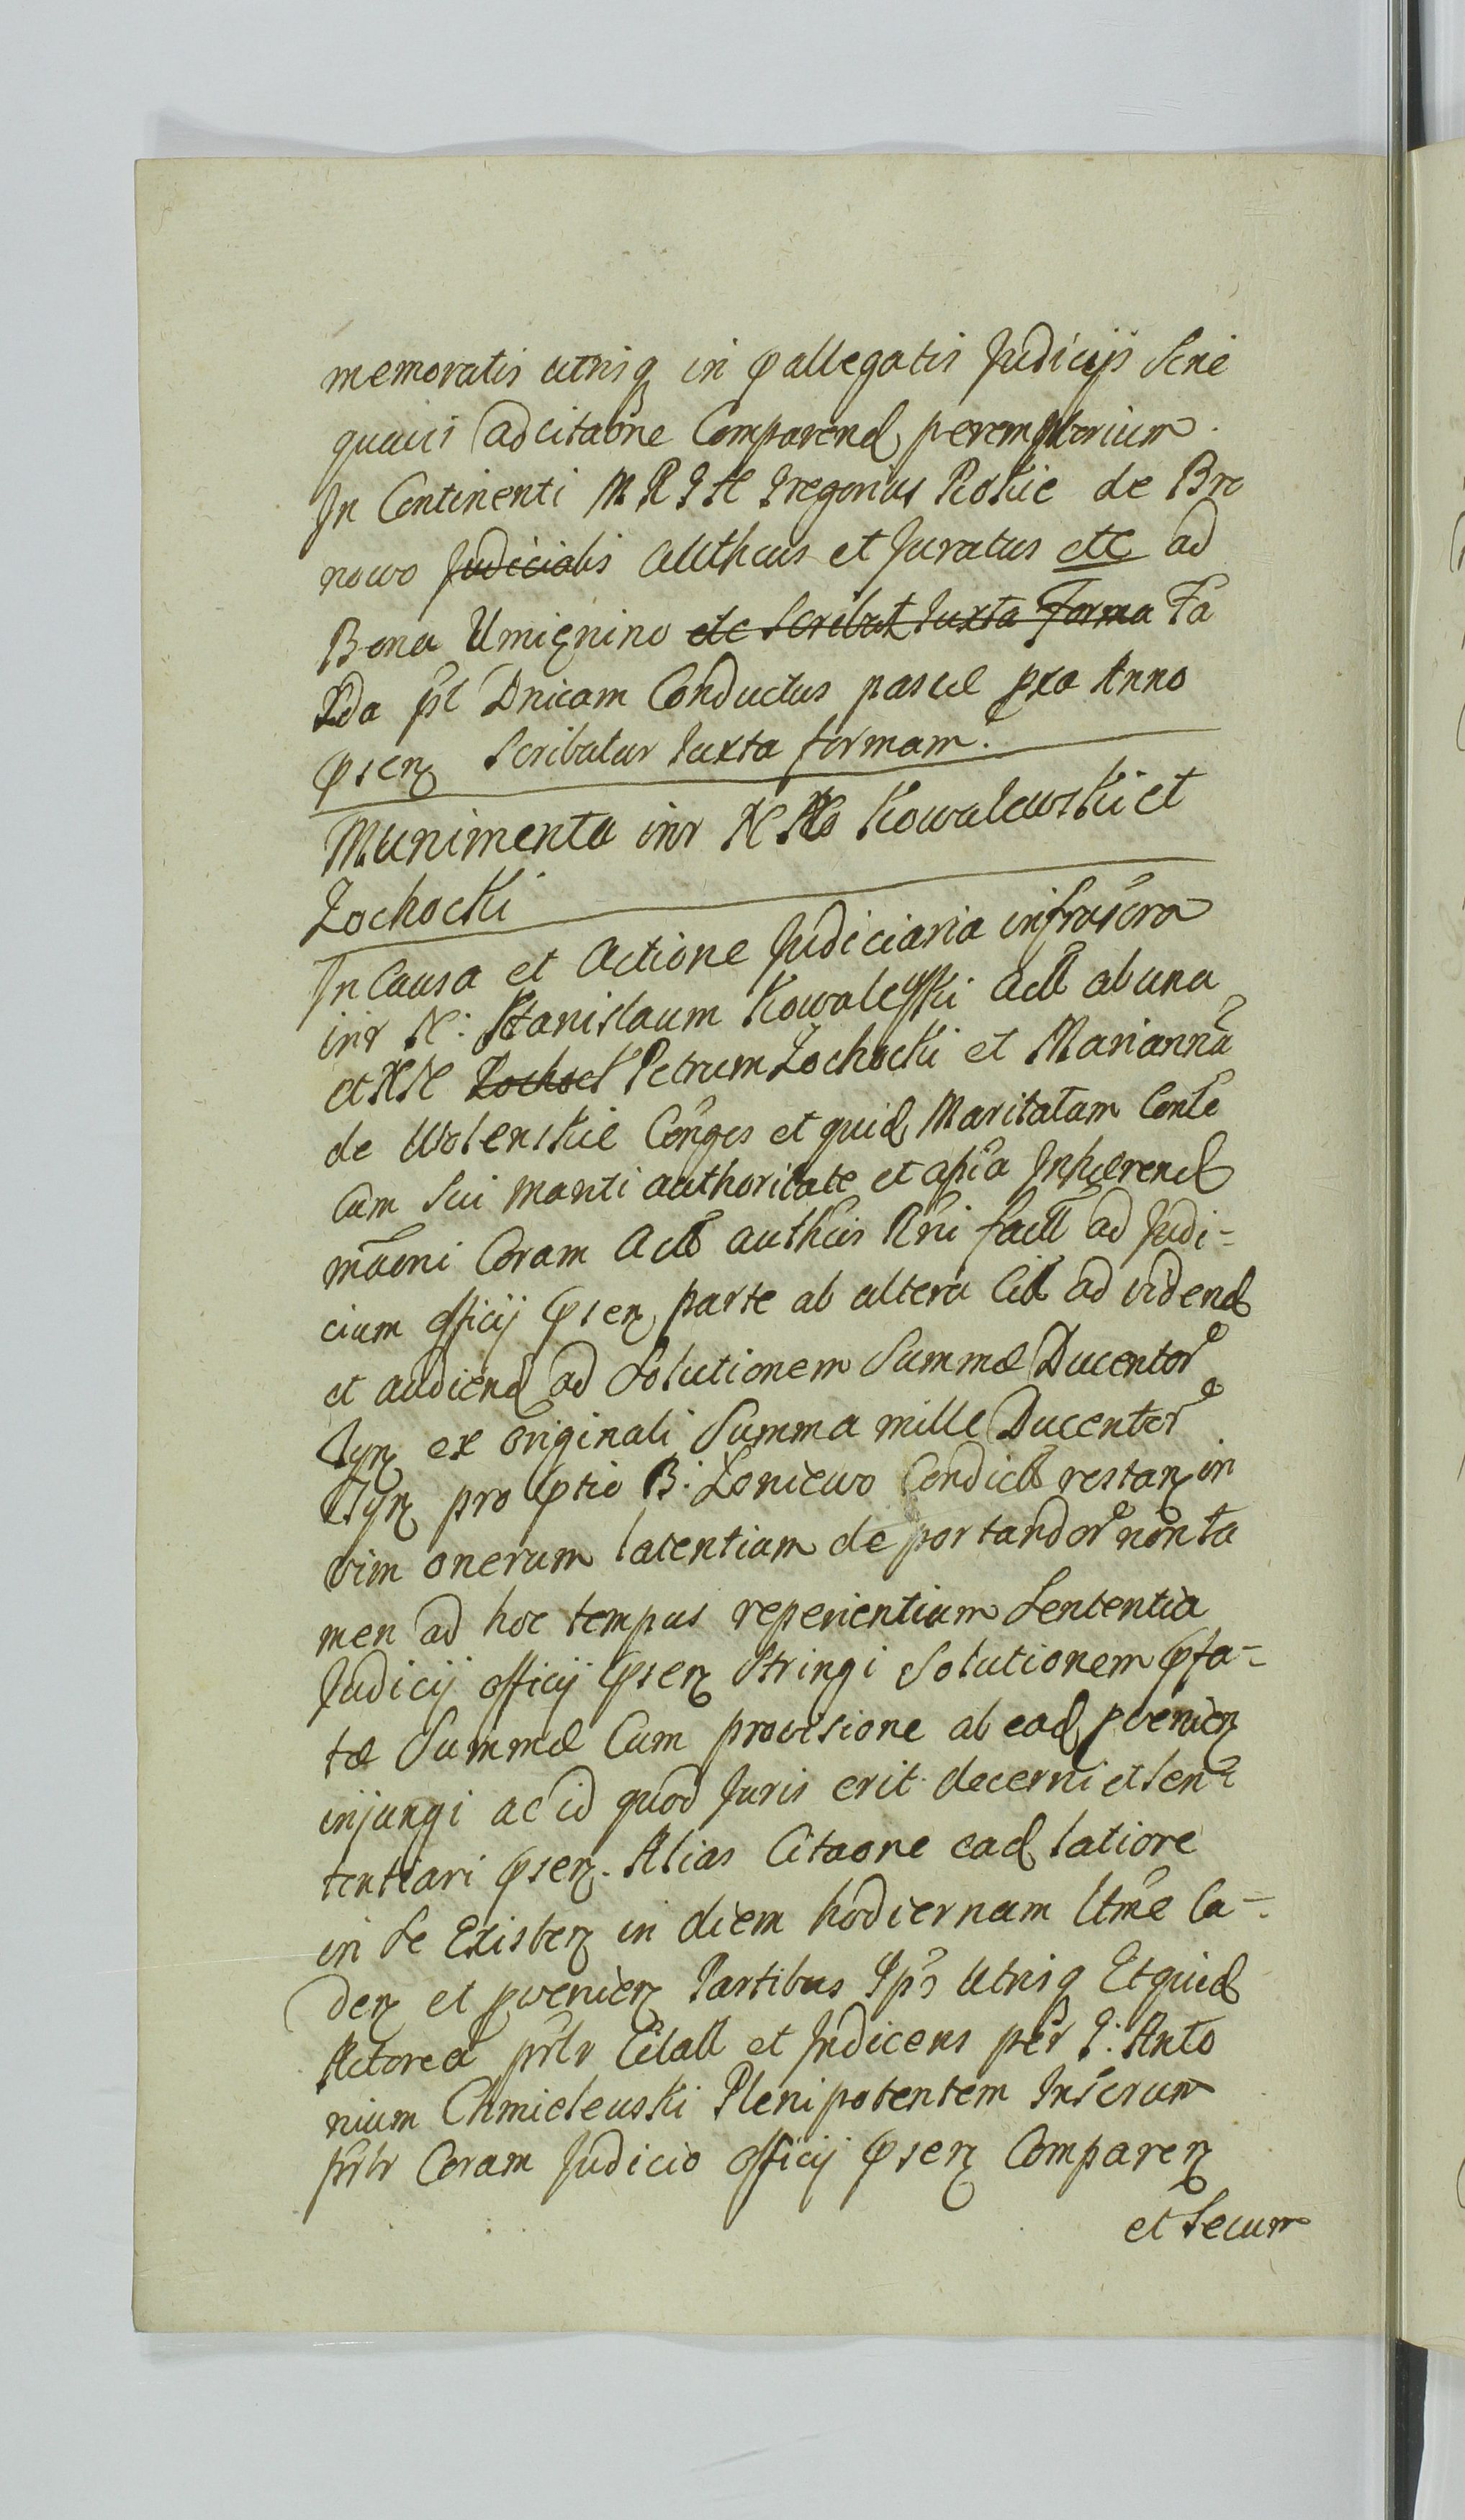 memoratis utrisq in pallegatis Judicijs Sine
quavis adcitaõne Comparend peremptorium.
In Continenti M R J N Gregorius Rokic de Bro
nowo Judicialis Authcus et Juratus etc ad
Bona Umienino etc Scribat Juxta Forma Fa
2da pt Dnicam Conductus pascue pro Anno
psen Scribatur Juxta formam.
Munimenta inr N No Kowalewski et
Zochocki
In Causa et Actione Judiciaria infrascra
inr N: Stanislaum Kowalewski Act ab una
et NN Zochock Petrum Zochocki et Mariannã
de Wolenskie Conges et quid Maritatam Conte
Cum Sui mariti authoritate et assia Inhærend
mõoni Coram Act authcis Rni fact ad Judi-
cium officij psen parte ab altera Cit ad vidend
et audiend ad Solutionem Summæ Ducentor
Tyn ex originali Summa mille Ducentor
Tyn pro ptio B: Loniewo Condict restan in
vim onerum latentium deportandor non ta
men ad hoc tempus reperientium Sententia
Judicij officij psen Stringi Solutionem pfa-
tæ Summæ Cum provisione ab ead pvenien
injungi ac id quod Juris erit decerni et sen-
tentiari psen. Alias Citaone ead latiore
in se Existen in diem hodiernam ltme Ca-
den et pvenien Partibus Ips Utrisq Et quid
Actorea prlr Citatt et Indicens per G: Anto
nium Chmielewski Plenipotentem Inscrum
prlr Coram Judicio officij psen Comparen
et Secum